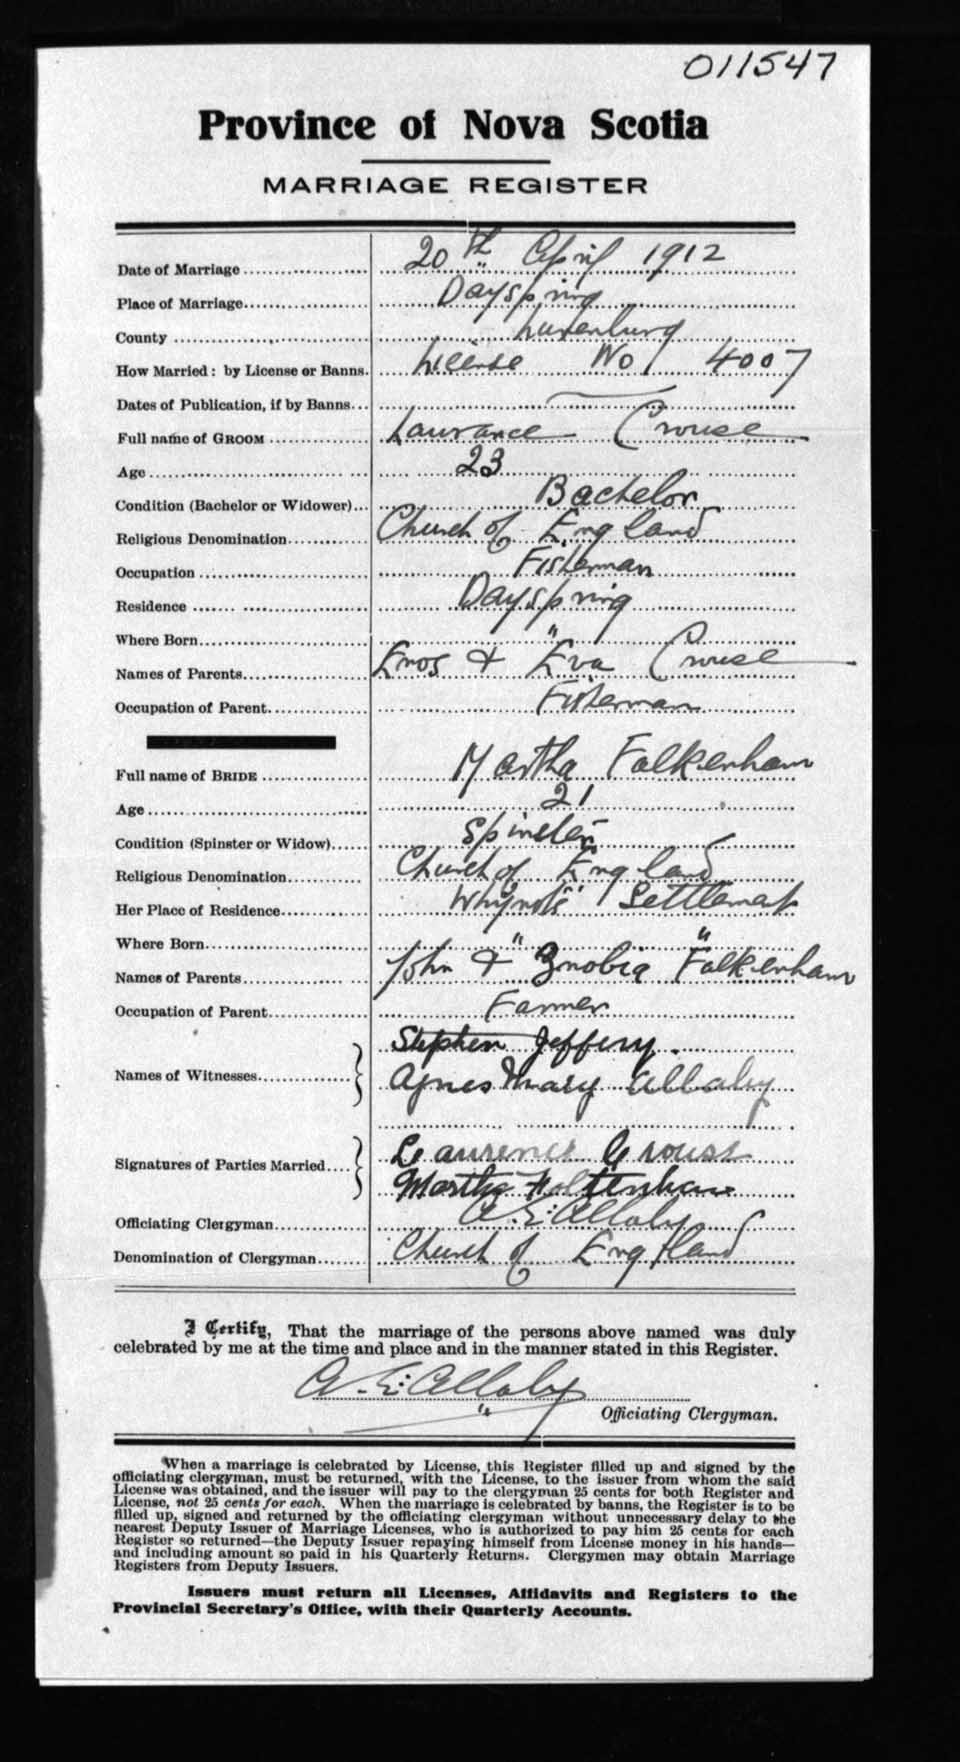 011547
Province of Nova Scotia
MARRIAGE REGISTER
Date of Marriage 20th April 1912
Place of Marriage Dayspring
County Lunenburg
How Married: by License or Banns. License No 4007
Dates of Publication, if by Banns
Full name of GROOM Laurance Crouse
Age 23
Condition (Bachelor or Widower) Bachelor
Religious Denomination Church of England
Occupation Fisherman
Residence Dayspring
Where Born "
Names of Parents Enos & Eva Crouse
Occupation of Parent Fisherman
Full name of BRIDE Martha Falkenham
Age 21
Condition (Spinster or Widow) Spinster
Religious Denomination Church of England
Her Place of Residence Whynots Settlement
Where Born " "
Names of Parents John & Znobia Falkenham
Occupation of Parent Farmer
Stephen Jeffery.
Names of Witnesses
Agnes Mary Allaby
Laurence Crouse
Signatures of Parties Married
Martha
Officiating Clergyman A. E. Allaby
Denomination of Clergyman Church of England
I Certify, That the marriage of the persons above named was duly
celebrated by me at the time and place and in the manner stated in this Register.
A. E. Allaby
Officiating Clergyman.
When a marriage is celebrated by License, this Register filled up and signed by the
officiating clergyman, must be returned, with the License, to the issuer from whom the said
License was obtained, and the issuer will pay to the clergyman 25 cents for both Register and
License, not 25 cents for each. When the marriage is celebrated by banns, the Register is to be
filled up, signed and returned by the officiating clergyman without unnecessary delay to the
nearest Deputy Issuer of Marriage Licenses, who is authorized to pay him 25 cents for each
Register so returned—the Deputy Issuer repaying himself from License money in his hands—
and including amount so paid in his Quarterly Returns. Clergymen may obtain Marriage
Registers from Deputy Issuers.
Issuers must return all Licenses, Affidavits and Registers to the
Provincial Secretary's Office, with their Quarterly Accounts.